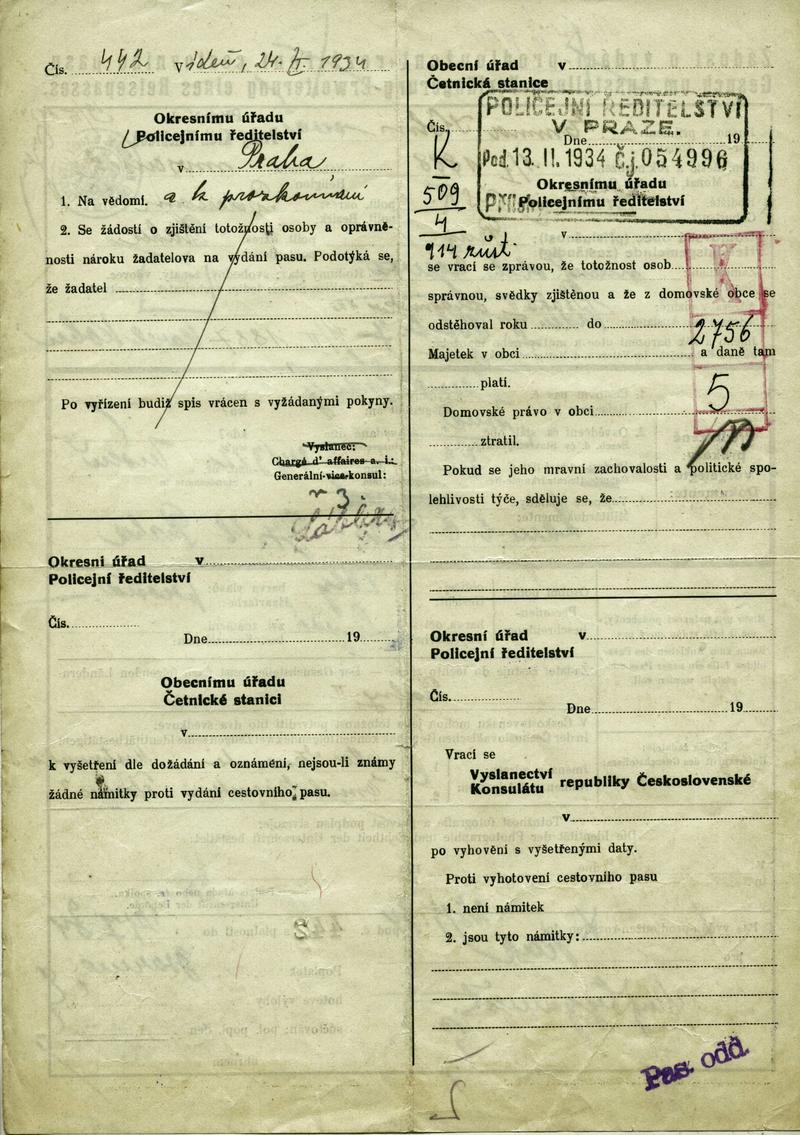 Čís. 442 Vídeň, 24. II. 1934
Okresnímu úřadu
Policejnímu ředitelství
v Praha
1. Na vědomí. a k prozkoumání
2. Se žádostí o zjištění totožnosti osoby a oprávně-
nosti nároku žadatelova na vydání pasu. Podotýká se,
že žadatel
Po vyřízení budiž spis vrácen s vyžádanými pokyny.
Vyslanec:
Chargé d' affaires a. i.:
Generální vicekonsul:
Okresní úřad v
Policejní ředitelství
Čís.
Dne 19
Obecnímu úřadu
Četnické stanici
v
k vyšetření dle dožádání a oznámení, nejsou-li známy
žádné námitky proti vydání cestovního pasu.
Obecní úřad v
Četnická stanice
POLICEJNÍ ŘEDITELSTVÍ
V PRAZE.
Čís. Dne 19
K
Pod. 13. II. 1934 Č.j. 054996
509
4
Okresnímu úřadu
Policejnímu ředitelství
v
se vrací se zprávou, že totožnost osob
K
správnou, svědky zjištěnou a že z domovské obce se
odstěhoval roku do
2756
Majetek v obci a daně tam
platí.
5
Domovské právo v obci
ztratil.
Pokud se jeho mravní zachovalosti a politické spo-
lehlivosti týče, sděluje se, že
Okresní úřad v
Policejní ředitelství
Čís.
Dne 19
Vrací se
Vyslanectví
Konsulátu republiky Československé
v
po vyhovění s vyšetřenými daty.
Proti vyhotovení cestovního pasu
1. není námitek
2. jsou tyto námitky:
Pas. odd.